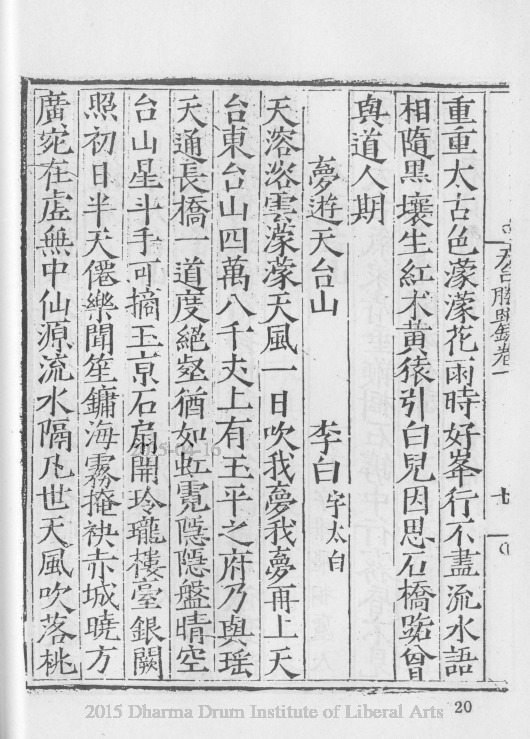 重重太古色濛濛花雨時好峯行不盡流水語
相隨黑壤生紅朮黃猿引白兒因思石橋路曾
與道人期
夢遊天台山 李白字太白
天溶溶雲濛濛天風一日吹我夢我夢再上天
台東台山四萬八千丈上有玉平之府乃與瑤
天通長橋一道度絕壑猶如虹霓隱隱盤晴空
台山星斗手可摘玉京石扇開玲瓏樓臺銀闕
照初日半天僊樂聞笙鏞海霧掩袂赤城曉方
廣宛在虛無中仙源流水隔凡世天風吹落桃
天台勝蹟錄卷一
七
20
2015 Dharma Drum Institute of Liberal Arts